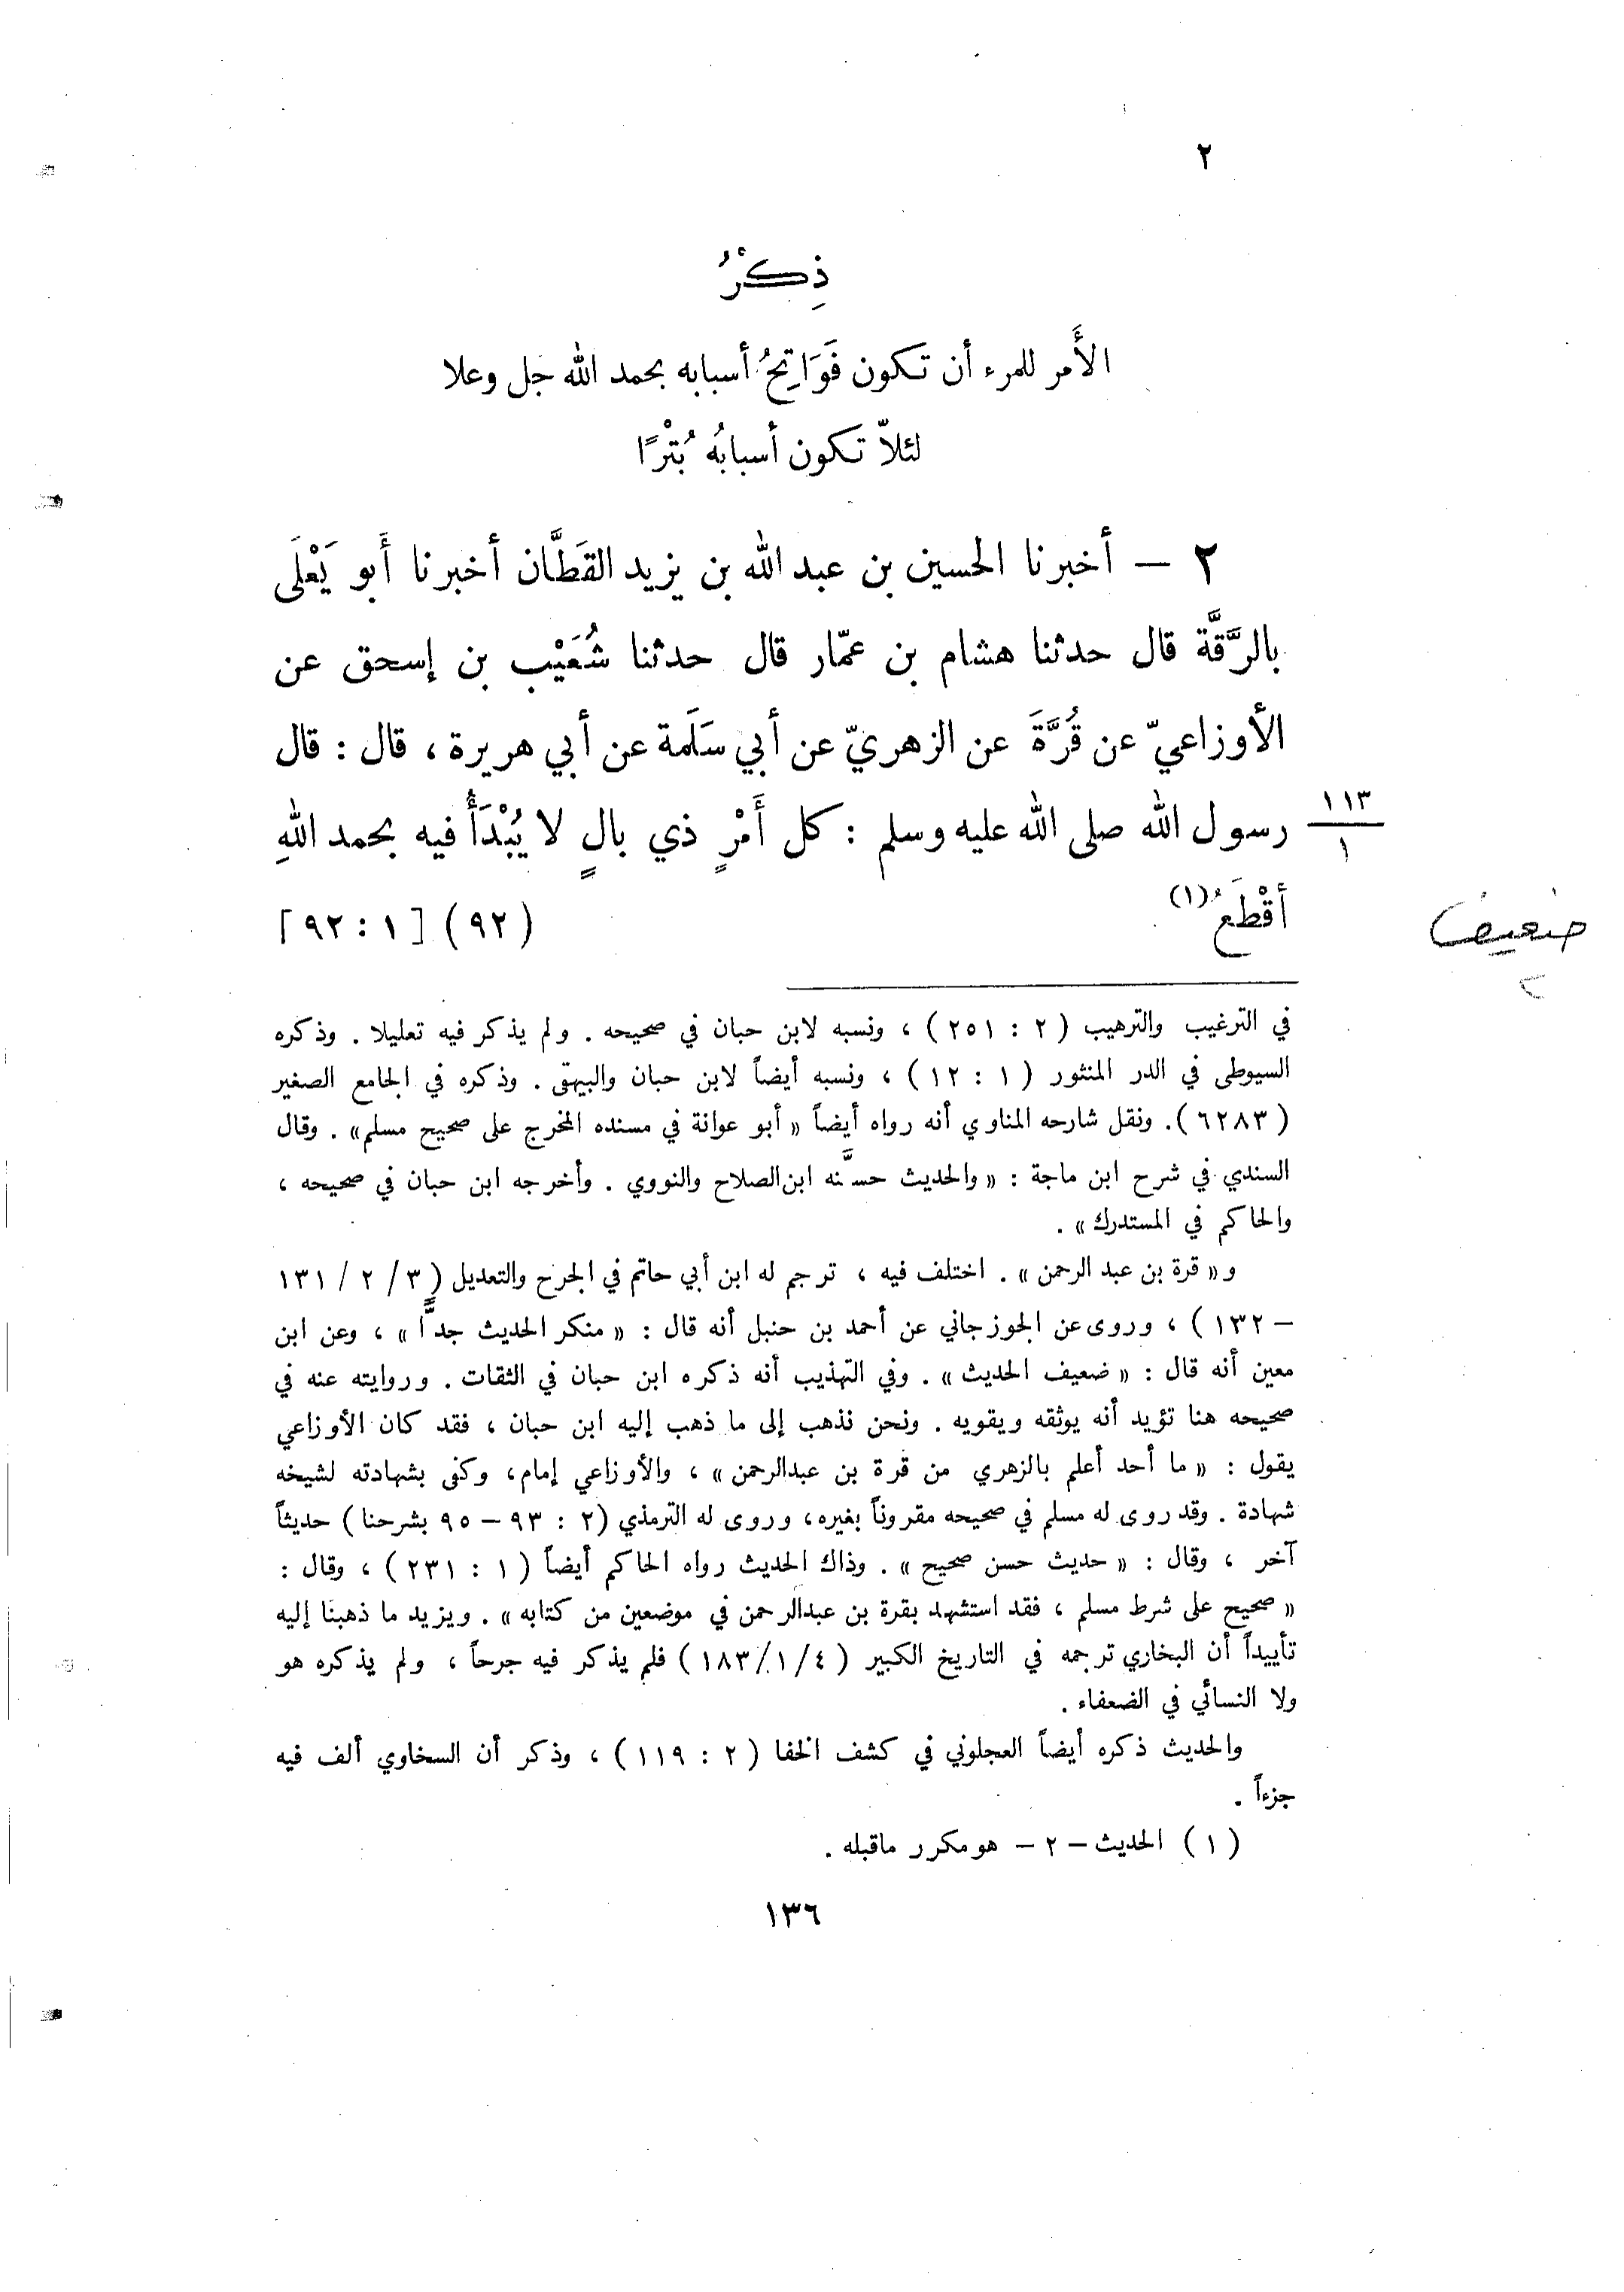 ٢
ذِكْرُ
الأَمر للمرء أن تكون فَوَاتِحُ أسبابه بحمد الله جل وعلا
لئلاّ تكون أسبابُه بُتْرًا
٢ – أخبرنا الحسين بن عبد الله بن يزيد القَطَّان أخبرنا أَبو يَعْلَى
بالرَّقَّة قال حدثنا هشام بن عمّار قال حدثنا شُعَيْب بن إسحق عن
الأوزاعيّ عن قُرَّةَ عن الزهريّ عن أبي سَلَمة عن أبي هريرة ، قال : قال
رسول الله صلى الله عليه وسلم : كل أَمْرٍ ذي بالٍ لا يُبْدَأُ فيه بحمد اللهِ
١١٣
١
أقْطَعُ (١)
(٩٢) [٩٢:١]
ضعيف
في الترغيب والترهيب ( ٢ : ٢٥١ ) ، ونسبه لابن حبان في صحيحه . ولم يذكر فيه تعليلا . وذكره
السيوطى في الدر المنثور ( ١ : ١٢ ) ، ونسبه أيضاً لابن حبان والبيهقى . وذكره في الجامع الصغير
( ٦٢٨٣ ). ونقل شارحه المناوي أنه رواه أيضاً « أبو عوانة في مسنده المخرج على صحيح مسلم» . وقال
السندي في شرح ابن ماجة : « والحديث حسَّنه ابن الصلاح والنووي . وأخرجه ابن حبان في صحيحه ،
والحاكم في المستدرك » .
و« قرة بن عبد الرحمن » . اختلف فيه ، ترجم له ابن أبي حاتم في الجرح والتعديل ( ٣ / ٢ / ١٣١
– ١٣٢ ) ، وروى عن الجوزجاني عن أحمد بن حنبل أنه قال : « منكر الحديث جدًّا » ، وعن ابن
معين أنه قال : « ضعيف الحديث » . وفي التهذيب أنه ذكره ابن حبان في الثقات . وروايته عنه في
صحيحه هنا تؤيد أنه يوثقه ويقويه . ونحن نذهب إلى ما ذهب إليه ابن حبان ، فقد كان الأوزاعي
يقول : « ما أحد أعلم بالزهري من قرة بن عبدالرحمن » ، والأوزاعي إمام، وكفى بشهادته لشيخه
شهادة . وقد روى له مسلم في صحيحه مقروناً بغيره، وروى له الترمذي (٢ : ٩٣ – ٩٥ بشرحنا ) حديثاً
آخر ، وقال : « حديث حسن صحيح » . وذاك الحديث رواه الحاكم أيضاً ( ١ : ٢٣١ ) ، وقال :
« صحيح على شرط مسلم ، فقد استشهد بقرة بن عبدالرحمن في موضعين من كتابه » . ويزيد ما ذهبنا إليه
تأييداً أن البخاري ترجمه في التاريخ الكبير ( ٤/ ١/ ١٨٣ ) فلم يذكر فيه جرحاً ، ولم يذكره هو
ولا النسائي في الضعفاء .
والحديث ذكره أيضاً العجلوني في كشف الخفا ( ٢ : ١١٩ ) ، وذكر أن السخاوي ألف فيه
جزءاً .
( ١ ) الحديث – ٢ – هو مكرر ماقبله .
١٣٦